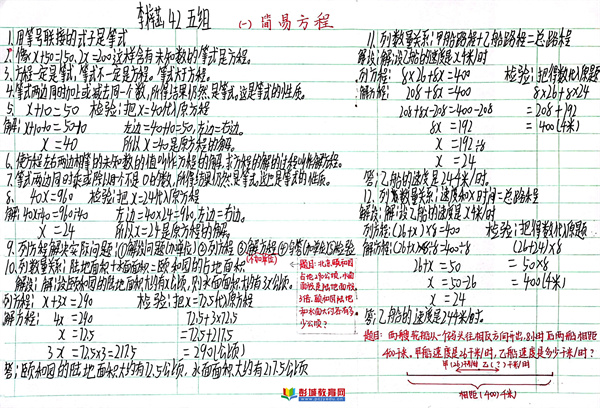 李梓菡 42 五组
(一) 简易方程
1.用等号联接的式子是等式
2.像x+50=150、2x=200这样含有未知数的等式是方程。
3.方程一定是等式,等式不一定是方程。等式大于方程。
4.等式两边同时加上或减去同一个数,所得结果仍然是等式。这是等式的性质。
5. x+10=50 检验:把x=40代入原方程
解:x+10-10=50-10 左边=40+10=50,左边=右边。
x=40 所以x=40是原方程的解。
6.使方程左右两边相等的未知数的值叫作方程的解,求方程的解的过程叫作解方程。
7.等式两边同时乘或除以同一个不是0的数,所得结果仍然是等式。这也是等式的性质。
8. 40x=960 检验:把x=24代入原方程
解:40x÷40=960÷40 左边=40×24=960,左边=右边。
x=24 所以x=24是原方程的解。
9.列方程解决实际问题:①解设问题(加单位)②列方程③解方程④写答(加单位)⑤检验
(不加单位)
10.列数量关系:陆地面积+水面面积=颐和园的占地面积
解设:解:设颐和园的陆地面积大约有x公顷,则水面面积大约有3x公顷。
列方程:x+3x=290 检验:把x=72.5代入原方程
解方程:4x=290 72.5+3×72.5
x=72.5 =72.5+217.5
3x=72.5×3=217.5 =290(公顷)
答:颐和园的陆地面积大约有72.5公顷,水面面积大约有217.5公顷
题目:北京颐和园
占地290公顷,水面
面积是陆地面积的
3倍。颐和园陆地
和水面大约各有多
少公顷?
11.列数量关系:甲船路程+乙船路程=总路程
解设:解:设乙船的速度是x千米/时
列方程:8×26+8x=400 检验:把得数代入原题
解方程:208+8x=400 8×26+8×24
208+8x-208=400-208 =208+192
8x=192 =400(千米)
x=192÷8
x=24
答:乙船的速度是24千米/时。
12.列数量关系:速度和×时间=总路程
解设:解:设乙船的速度是x千米/时
列方程:(26+x)×8=400 检验:把得数代入原题
解方程:(26+x)×8÷8=400÷8 (26+24)×8
26+x=50 =50×8
x=50-26 =400(千米)
x=24
答:乙船的速度是24千米/时。
题目:两艘轮船从一个码头往相反方向开出,8小时后两船相距
400千米。甲船速度是26千米/时,乙船速度是多少千米/时?
相距(400)千米
彭城教育网